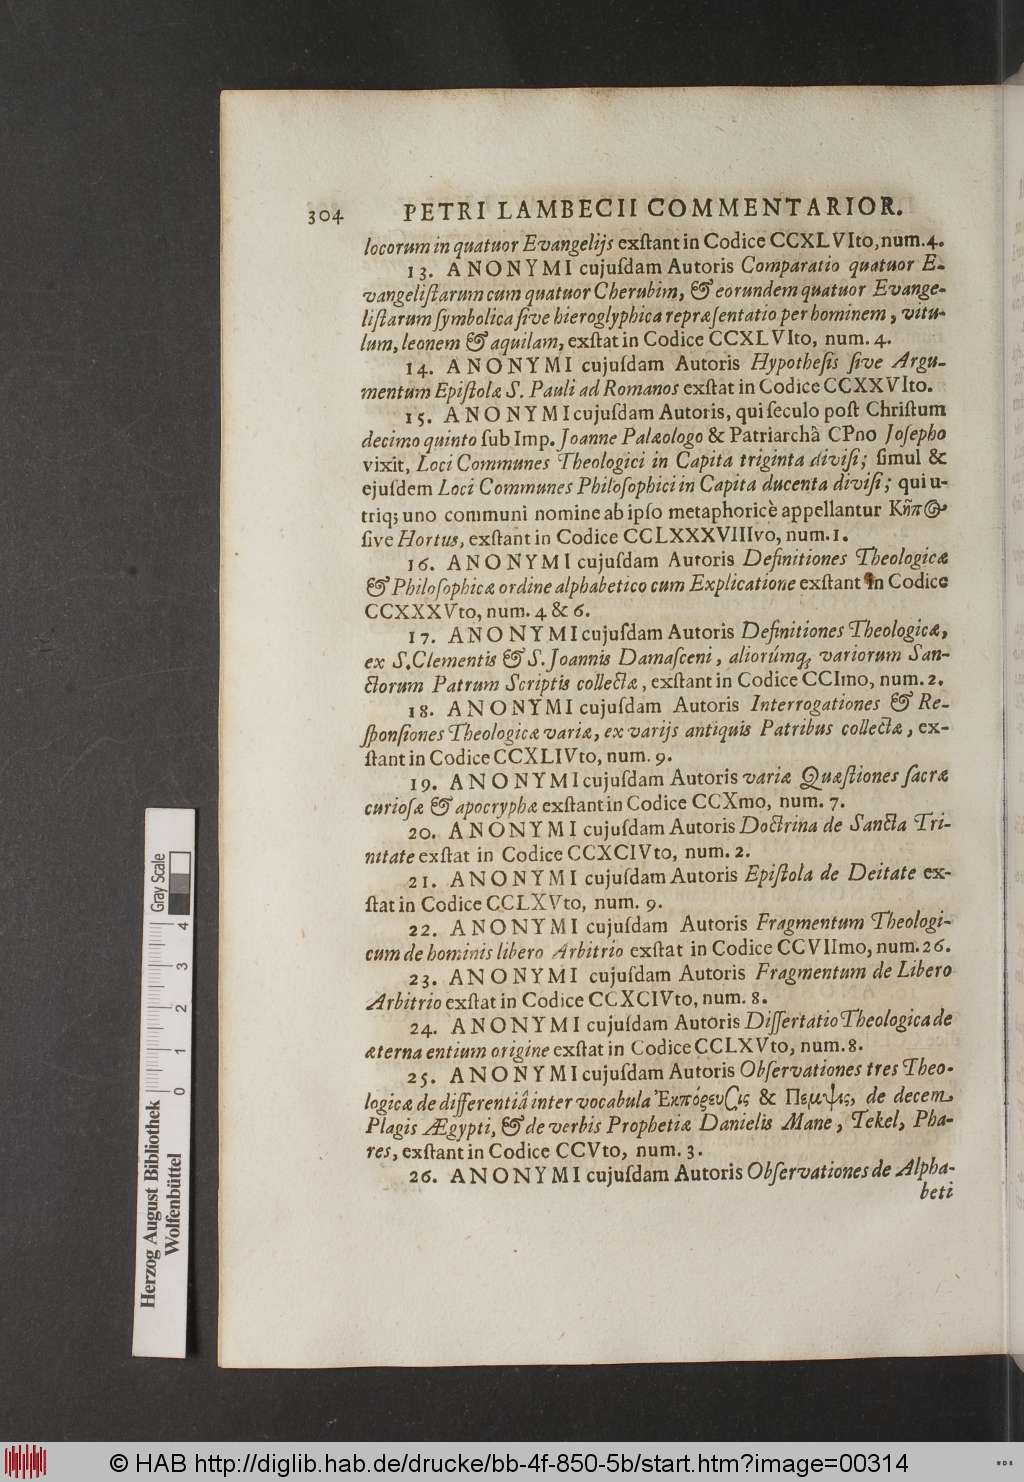 304 PETRI LAMBECII COMMENTARIOR.
locorum in quatuor Evangelijs exſtant in Codice CCXLVIto, num. 4.
13. ANONYMI cujuſdam Autoris Comparatio quatuor E-
vangeliſtarum cum quatuor Cherubim, & eorundem quatuor Evange-
liſtarum ſymbolica ſive hieroglyphica repræſentatio per hominem, vitu-
lum, leonem & aquilam, exſtat in Codice CCXLVIto, num. 4.
14. ANONYMI cujuſdam Autoris Hypotheſis ſive Argu-
mentum Epiſtolæ S. Pauli ad Romanos exſtat in Codice CCXXVIto.
15. ANONYMI cujuſdam Autoris, qui ſeculo poſt Chriſtum
decimo quinto ſub Imp. Joanne Palæologo & Patriarchâ CPno Joſepho
vixit, Loci Communes Theologici in Capita triginta diviſi; ſimul &
ejuſdem Loci Communes Philoſophici in Capita ducenta diviſi; qui u-
triq; uno communi nomine ab ipſo metaphoricè appellantur Κῆπος
ſive Hortus, exſtant in Codice CCLXXXVIIIvo, num. 1.
16. ANONYMI cujuſdam Autoris Definitiones Theologicæ
& Philoſophicæ ordine alphabetico cum Explicatione exſtant in Codice
CCXXXVto, num. 4 & 6.
17. ANONYMI cujuſdam Autoris Definitiones Theologicæ,
ex S. Clementis & S. Joannis Damaſceni, aliorúmq; variorum San-
ctorum Patrum Scriptis collectæ, exſtant in Codice CCImo, num. 2.
18. ANONYMI cujuſdam Autoris Interrogationes & Re-
ſponſiones Theologicæ variæ, ex varijs antiquis Patribus collectæ, ex-
ſtant in Codice CCXLIVto, num. 9.
19. ANONYMI cujuſdam Autoris variæ Quæſtiones ſacræ
curioſæ & apocryphæ exſtant in Codice CCXmo, num. 7.
20. ANONYMI cujuſdam Autoris Doctrina de Sancta Tri-
nitate exſtat in Codice CCXCIVto, num. 2.
21. ANONYMI cujuſdam Autoris Epiſtola de Deitate ex-
ſtat in Codice CCLXVto, num. 9.
22. ANONYMI cujuſdam Autoris Fragmentum Theologi-
cum de hominis libero Arbitrio exſtat in Codice CCVIImo, num. 26.
23. ANONYMI cujuſdam Autoris Fragmentum de Libero
Arbitrio exſtat in Codice CCXCIVto, num. 8.
24. ANONYMI cujuſdam Autoris Diſſertatio Theologica de
æterna entium origine exſtat in Codice CCLXVto, num. 8.
25. ANONYMI cujuſdam Autoris Obſervationes tres Theo-
logicæ de differentiâ inter vocabula Ἐκπόρευσις & Πεμψις, de decem
Plagis Ægypti, & de verbis Prophetiæ Danielis Mane, Tekel, Pha-
res, exſtant in Codice CCVto, num. 3.
26. ANONYMI cujuſdam Autoris Obſervationes de Alpha-
beti
Herzog August Bibliothek
Wolfenbüttel
Gray Scale
0 1 2 3 4
© HAB http://diglib.hab.de/drucke/bb-4f-850-5b/start.htm?image=00314